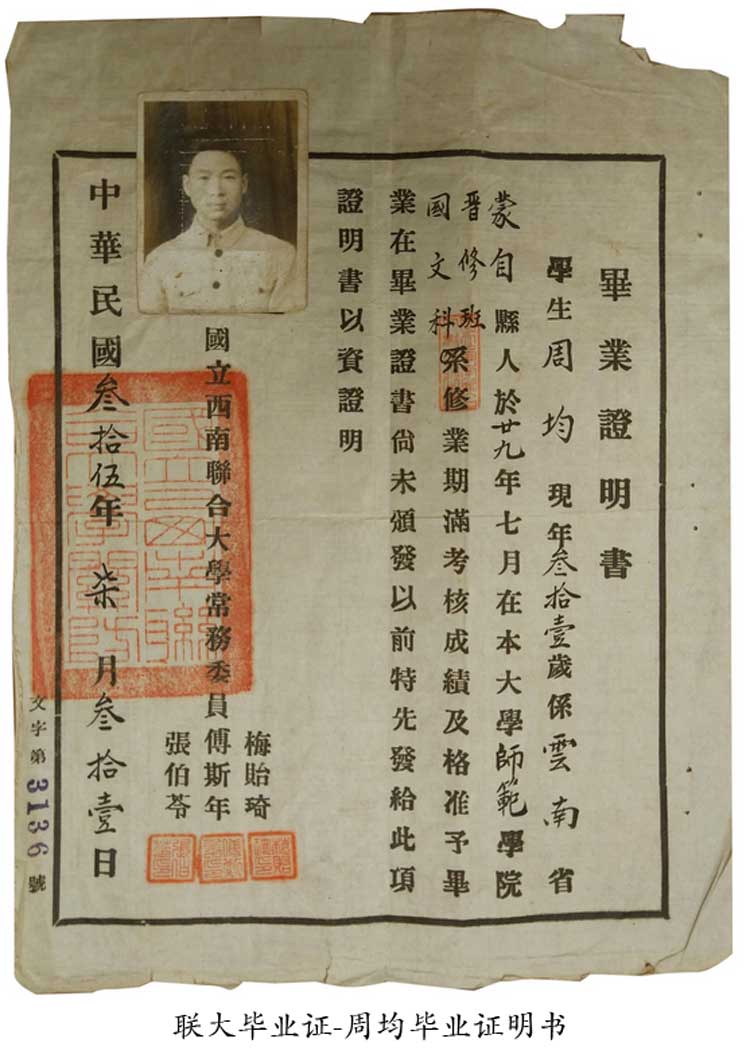 畢業證明書
學生周均現年叁拾壹歲係雲南省
蒙自縣人於廿九年七月在本大學師範學院
晋修班
國文科
系修業期滿考核成績及格准予畢
業在畢業證書尚未頒發以前特先發給此項
證明書以資證明
國立西南聯合大學常務委員
梅貽琦
傅斯年
張伯苓
中華民國叁拾伍年柒月叁拾壹日
文字第3136號
联大毕业证-周均毕业证明书